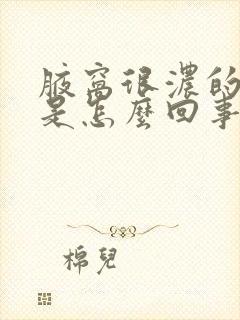 腋窩很濃的
是怎麼回事
棉兒